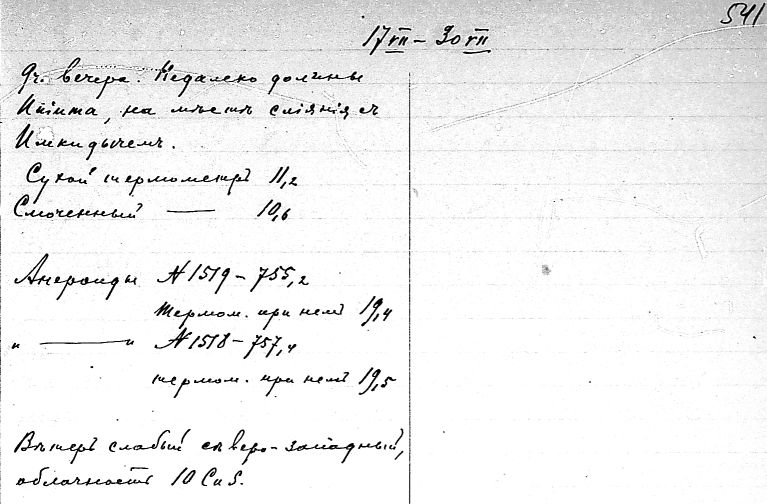 541
17 VII – 30 VII
9 ч. вечера. Недалеко долины
на мѣстѣ слiянiя съ
Имкидычемъ.
Сухой термометръ 11,2
Смоченный — 10,6
Анероиды N 1519 – 755,2
Термом. при немъ 19,4
" — " N 1518 – 757,4
термом. при немъ 19,5
Вѣтеръ слабый сѣверо-западный,
облачность 10 CuS.